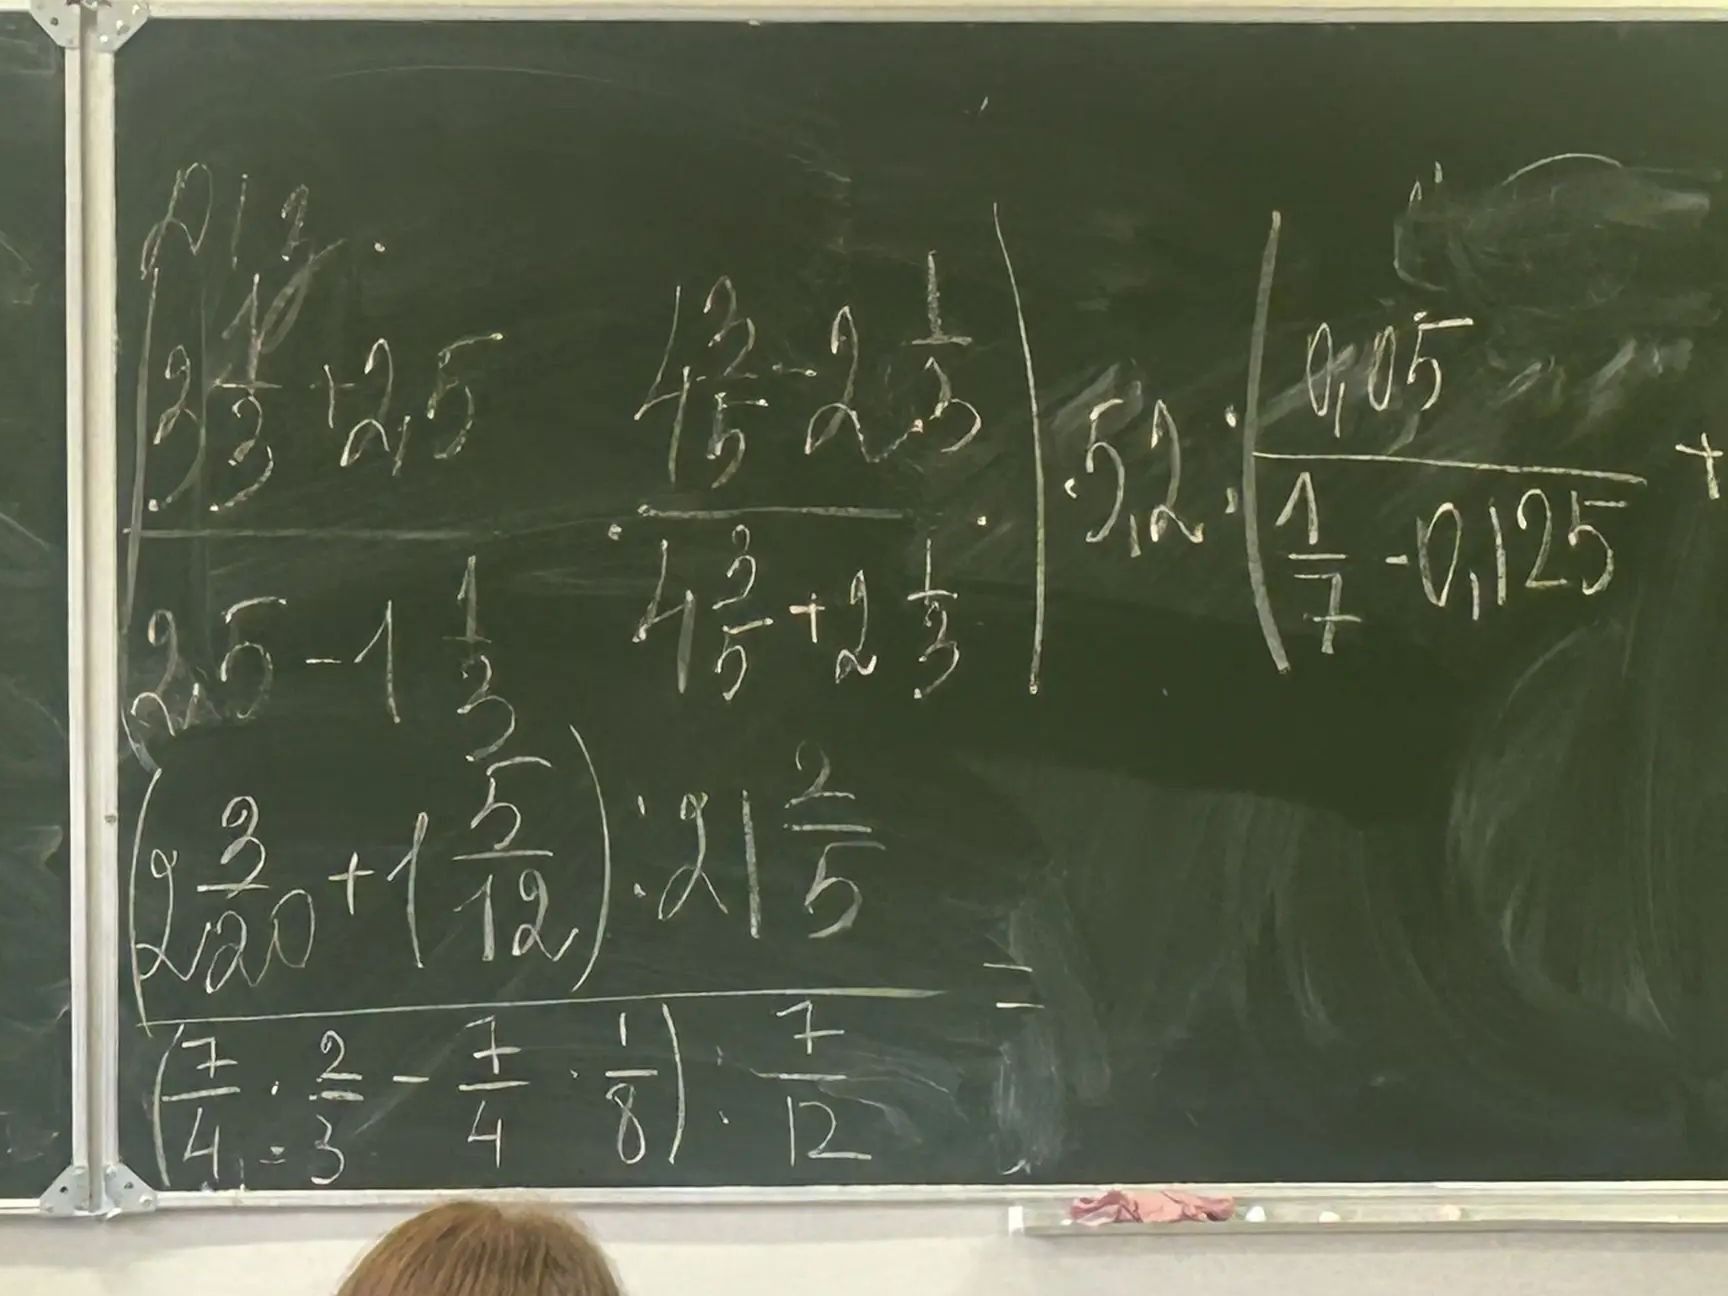 (3 1/3 + 2,5)/(2,5 - 1 1/3) : (4 3/5 - 2 1/3)/(4 3/5 + 2 1/3) · 5,2 : (0,05/(1/7 - 0,125) +
(2 3/20 + 1 5/12) : 21 2/5
/
(7/4 : 2/3 - 7/4 · 1/8) : 7/12 =